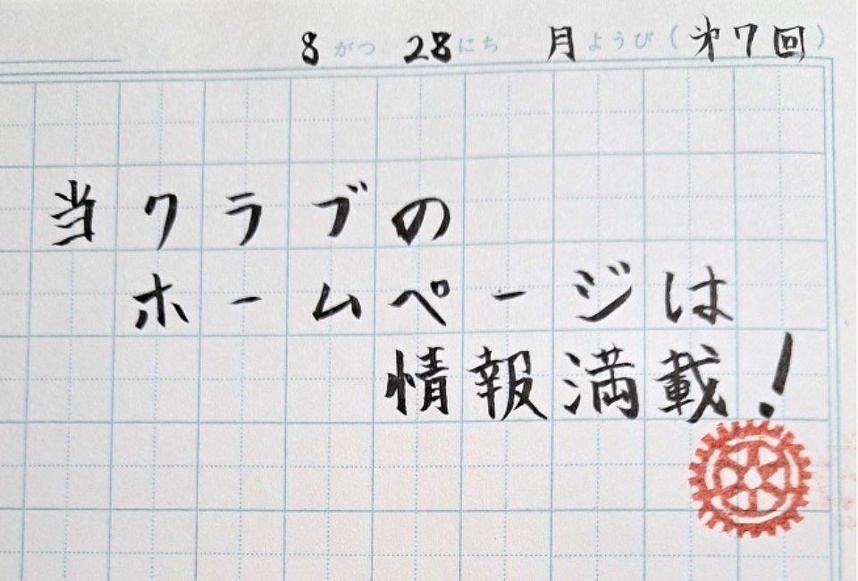 8がつ28にち 月ようび(第7回)
当クラブの
ホームページは
情報満載!